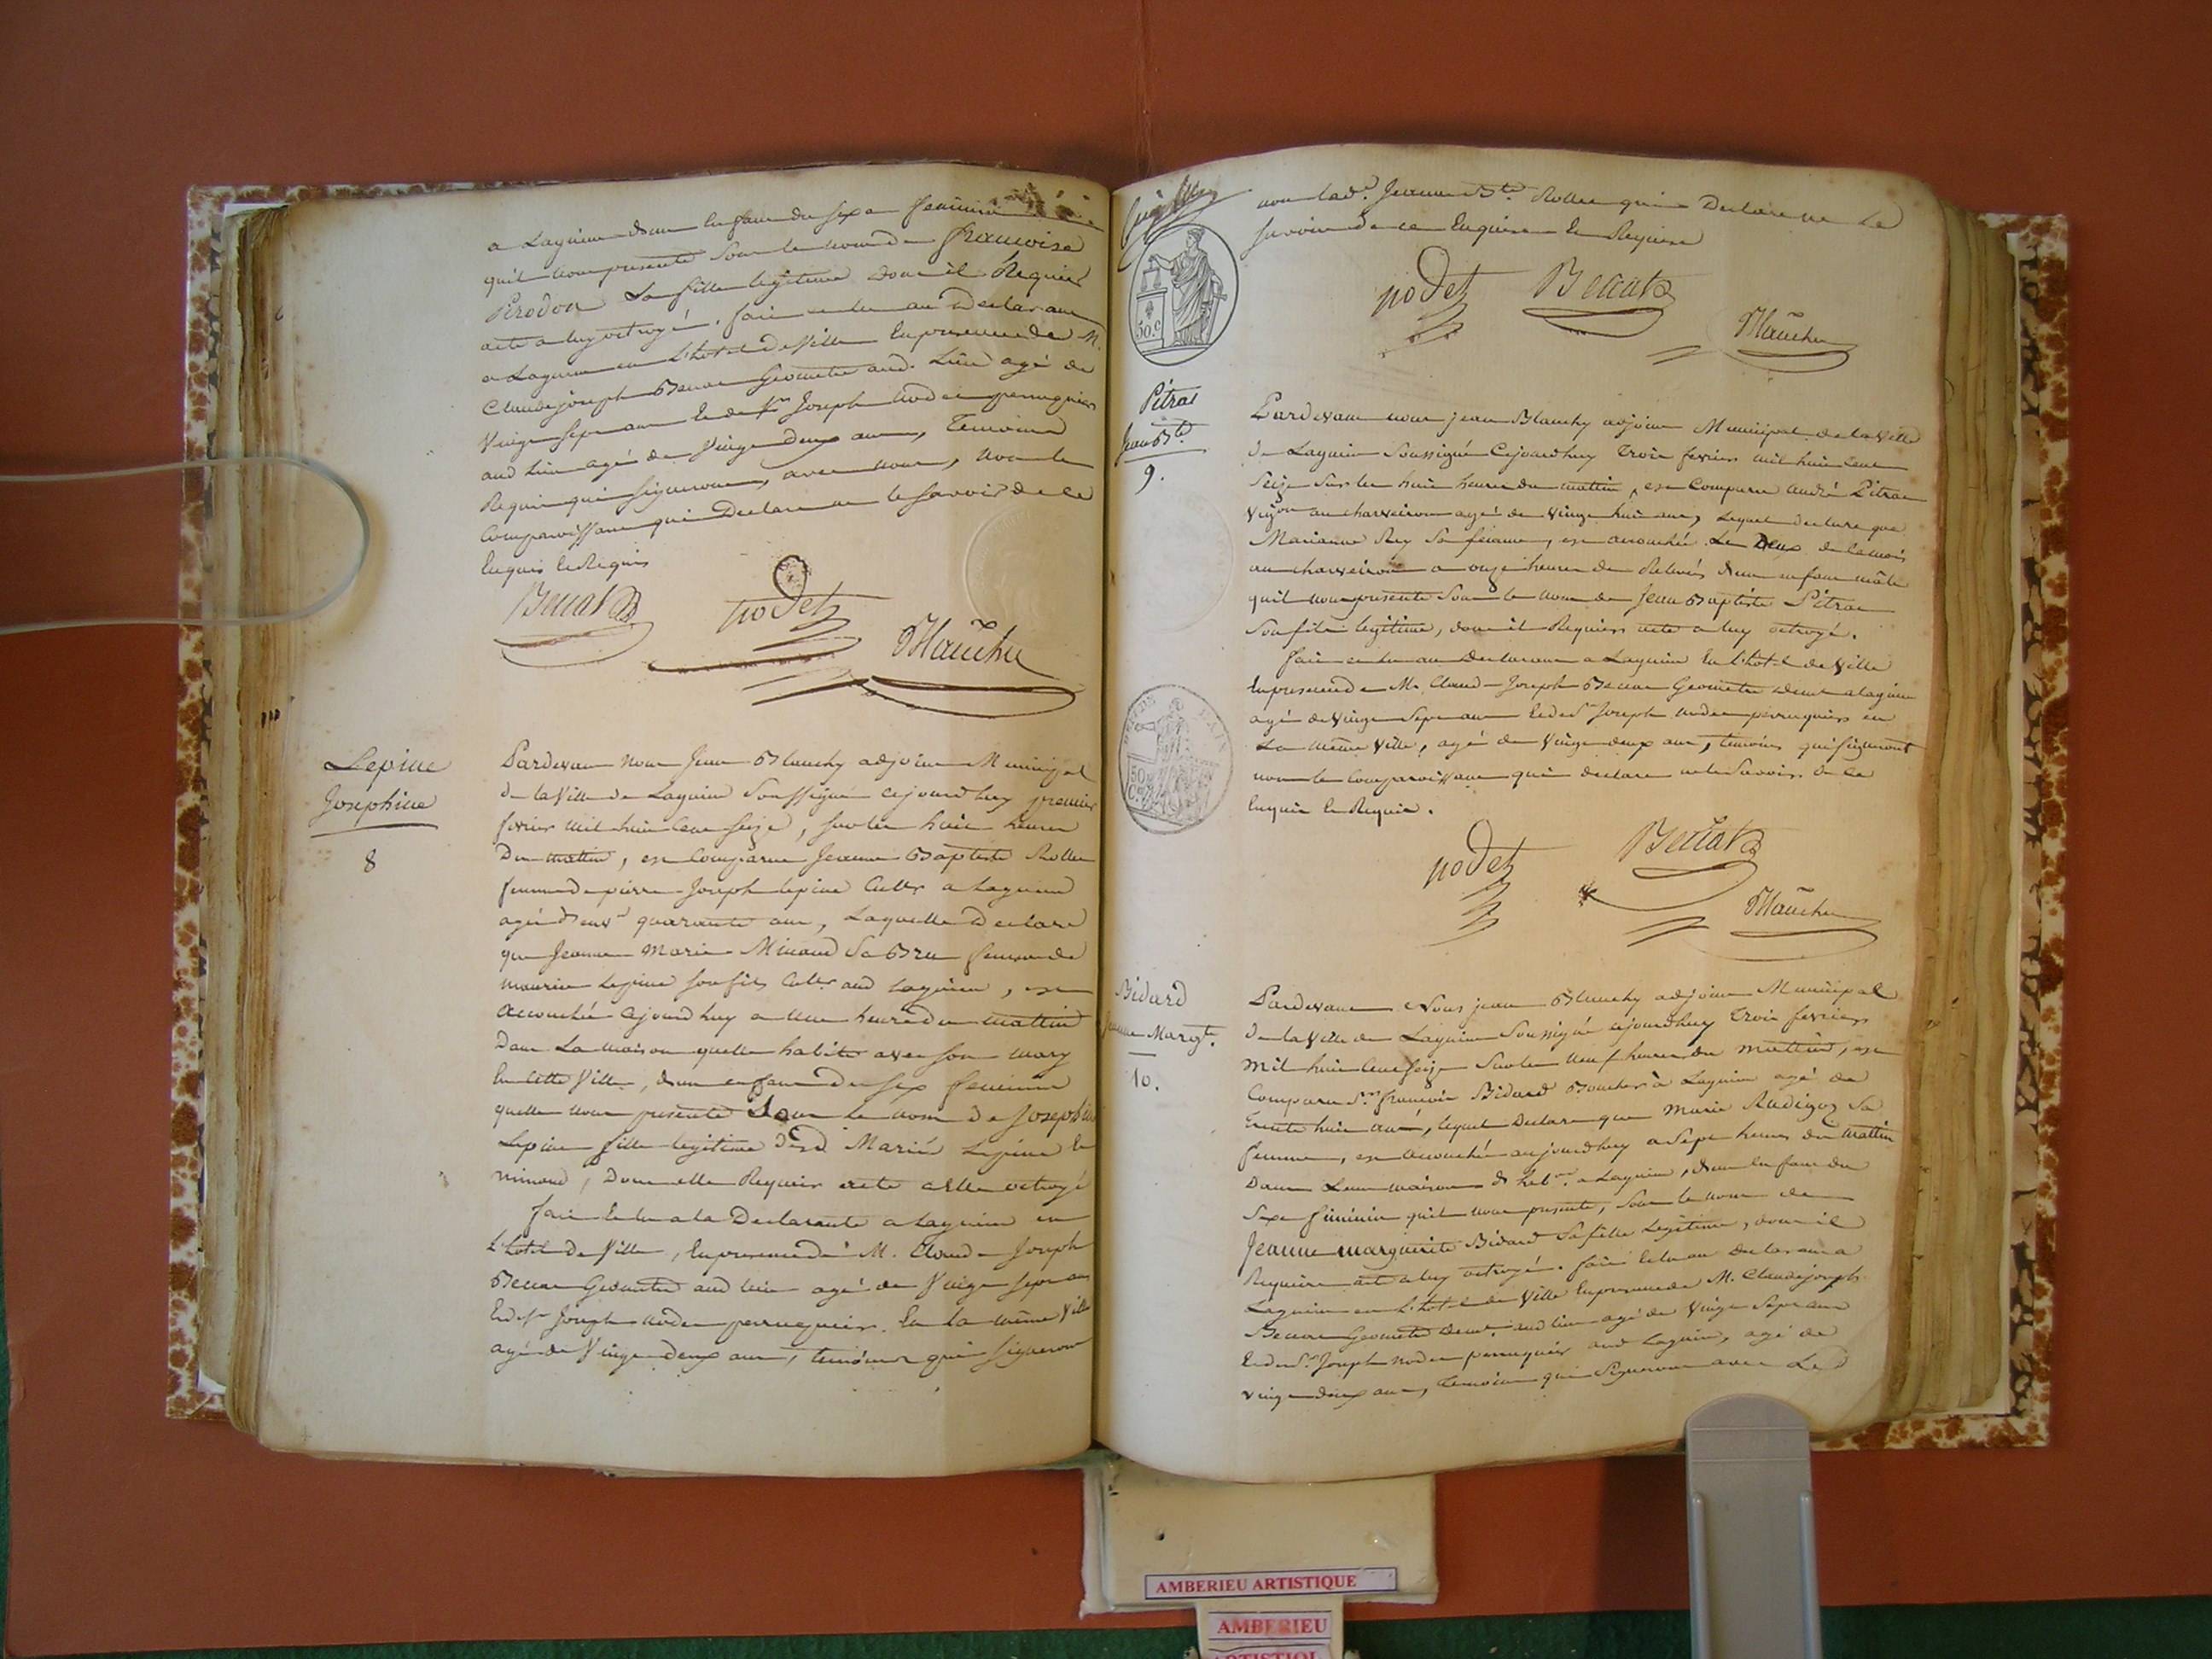 a Lagnieu d'un enfant du sexe feminin
qu'il nous presente sous le nom de françoise
Perodon Sa fille legitime dont il Requier
acte a luy octroyé. fait et lu au Declarant
a Lagnieu en L'hotel de Ville En presence de M.
Claude joseph Benat Geometre aud. Lieu agé de
Vingt sept ans Et de Sr Joseph nodet perruquier
aud Lieu agé de Vingt deux ans, Temoins
Requis qui signeront, avec nous, non le
Comparoissant qui Declare ne le savoir de ce
Enquis Et Requis
Benat
nodet
Blanchy
Lepine
Josephine
8
Pardevant Nous Jean Blanchy adjoint Municipal
de la Ville de Lagnieu Soussigné cejourd'huy premier
fevrier mil huit Cent seize, sur les huit heures
Du mattin, est Comparue Jeanne Baptiste Rollet
femme de pierre Joseph lepine Cultr a Lagnieu
agée d'envn quarante ans, Laquelle Declare
que Jeanne Marie Minand Sa Bru femme de
maurice Lepine son fils Cultr aud Lagnieu, est
accouchée Cejourd'huy a une heure du mattin
Dans La maison quelle habite avec son mary
En cette Ville, d'un enfant du sex feminin
quelle nous presente Sous Le nom De Josephine
Lepine fille legitime desd Mariés Lepine Et
minand, Dont elle Requier acte a elle octroyé
fait Et lu a la Declarante a Lagnieu en
L'hotel De Ville, En presence de M. Claude Joseph
Benat Geometre aud lieu agé de Vingt sept ans
Et de Sr Joseph nodet perruquier. En La même Ville
agé de Vingt deux ans, temoins qui signeront
non lade. Jeanne Bte. Rollet qui Declare ne Le
savoir De ce Enquise Et Requise
nodet
Benat
Blanchy
50.c
Pitrat
Jean Bte
9.
Pardevant nous jean Blanchy adjoint Municipal de la Ville
De Lagnieu Soussigné Cejourd'huy Trois fevrier mil huit Cent
Seize Sur les huit heures du mattin, est Comparu André Pitrat
Vigon au charveiron agé de Vingt huit ans, Lequel declare que
Marianne Rey Sa femme, est accouchée Le Deux de ce mois
au charveiron a onze heures de Relevée d'un enfant mâle
qu'il nous presente Sous le nom de Jean Baptiste Pitrat
Son fils legitime, dont il Requiers acte a luy octroyé.
fait et lu au Declarant a Lagnieu En L'hotel de Ville
En presence de M. Claude Joseph Benat Geometre demt a lagnieu
agé de Vingt Sept ans Et de Sr Joseph nodet perruquier en
La même Ville, agé de Vingt deux ans, temoins qui signeront
non le Comparoissant qui declare ne le Savoir De ce
Enquis Et Requis.
50
C.
nodet
Benat
Blanchy
Bidard
Jeanne Margte.
10.
Pardevant Nous jean Blanchy adjoint Municipal
De la Ville de Lagnieu Soussigné cejourd'huy Trois fevrier
Mil huit Cent Seize Sur les neuf heures du mattin, est
Comparu Sr. françois Bidard Boucher à Lagnieu agé de
Trente huit ans, lequel Declare que Marie Rudigoz Sa
femme, est accouchée aujourd'huy a Sept heures du mattin
Dans Leur maison d'habon. a Lagnieu, d'un Enfant du
Sexe feminin qu'il nous presente, Sous le nom de
Jeanne marguerite Bidard Sa fille Legitime, dont il
Requiere acte a luy octroyé. fait Et lu au Declarant a
Lagnieu en L'hotel de Ville En presence de M. Claude joseph
Benat Geometre demt. aud lieu agé de Vingt Sept ans
Et de Sr. Joseph nodet perruquier aud Lagnieu, agé de
vingt deux ans, Temoins qui Signeront avec Led
AMBERIEU ARTISTIQUE
AMBERIEU
ARTISTIQUE